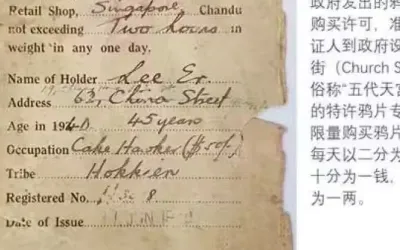 Retail Shop, Singapore, Chandu
not exceeding Two hoons in
weight in any one day.
Name of Holder Lee Er
Address 63, China Street
Age in 194 45 years
Occupation Cake Hawker
Tribe Hokkien
Registered No. 8
Date of Issue
政府发出的鸦
购买许可，准
证人到政府设
街（Church S
俗称“五代天宫
的特许鸦片专
限量购买鸦片
每天以二分为
十分为一钱，
为一两。